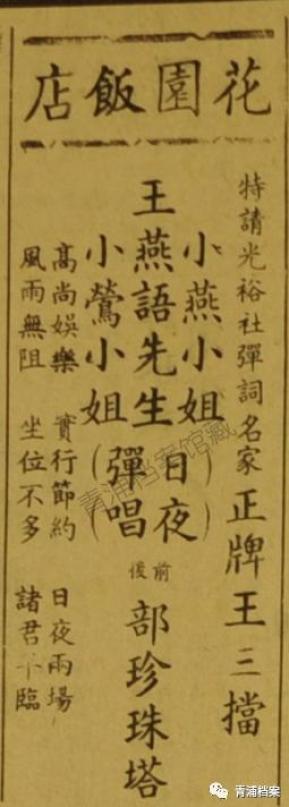 花園飯店
特請光裕社彈詞名家正牌王三擋
小燕小姐
王燕語先生
小鶯小姐
(日夜)
(彈唱)
前後部珍珠塔
高尚娛樂 實行節約 日夜兩場
風雨無阻 坐位不多 諸君 臨
青浦档案馆藏
青浦档案